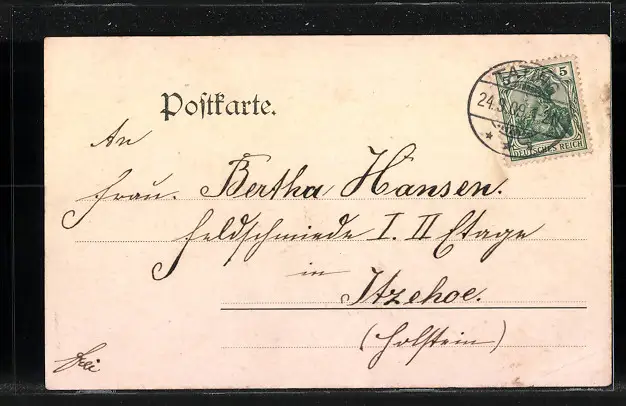 Postkarte.
24.3.09
5
DEUTSCHES REICH
An
Frau. Bertha Hansen.
Feldschmiede I. II Etage
in
Itzehoe.
(Holstein)
frei